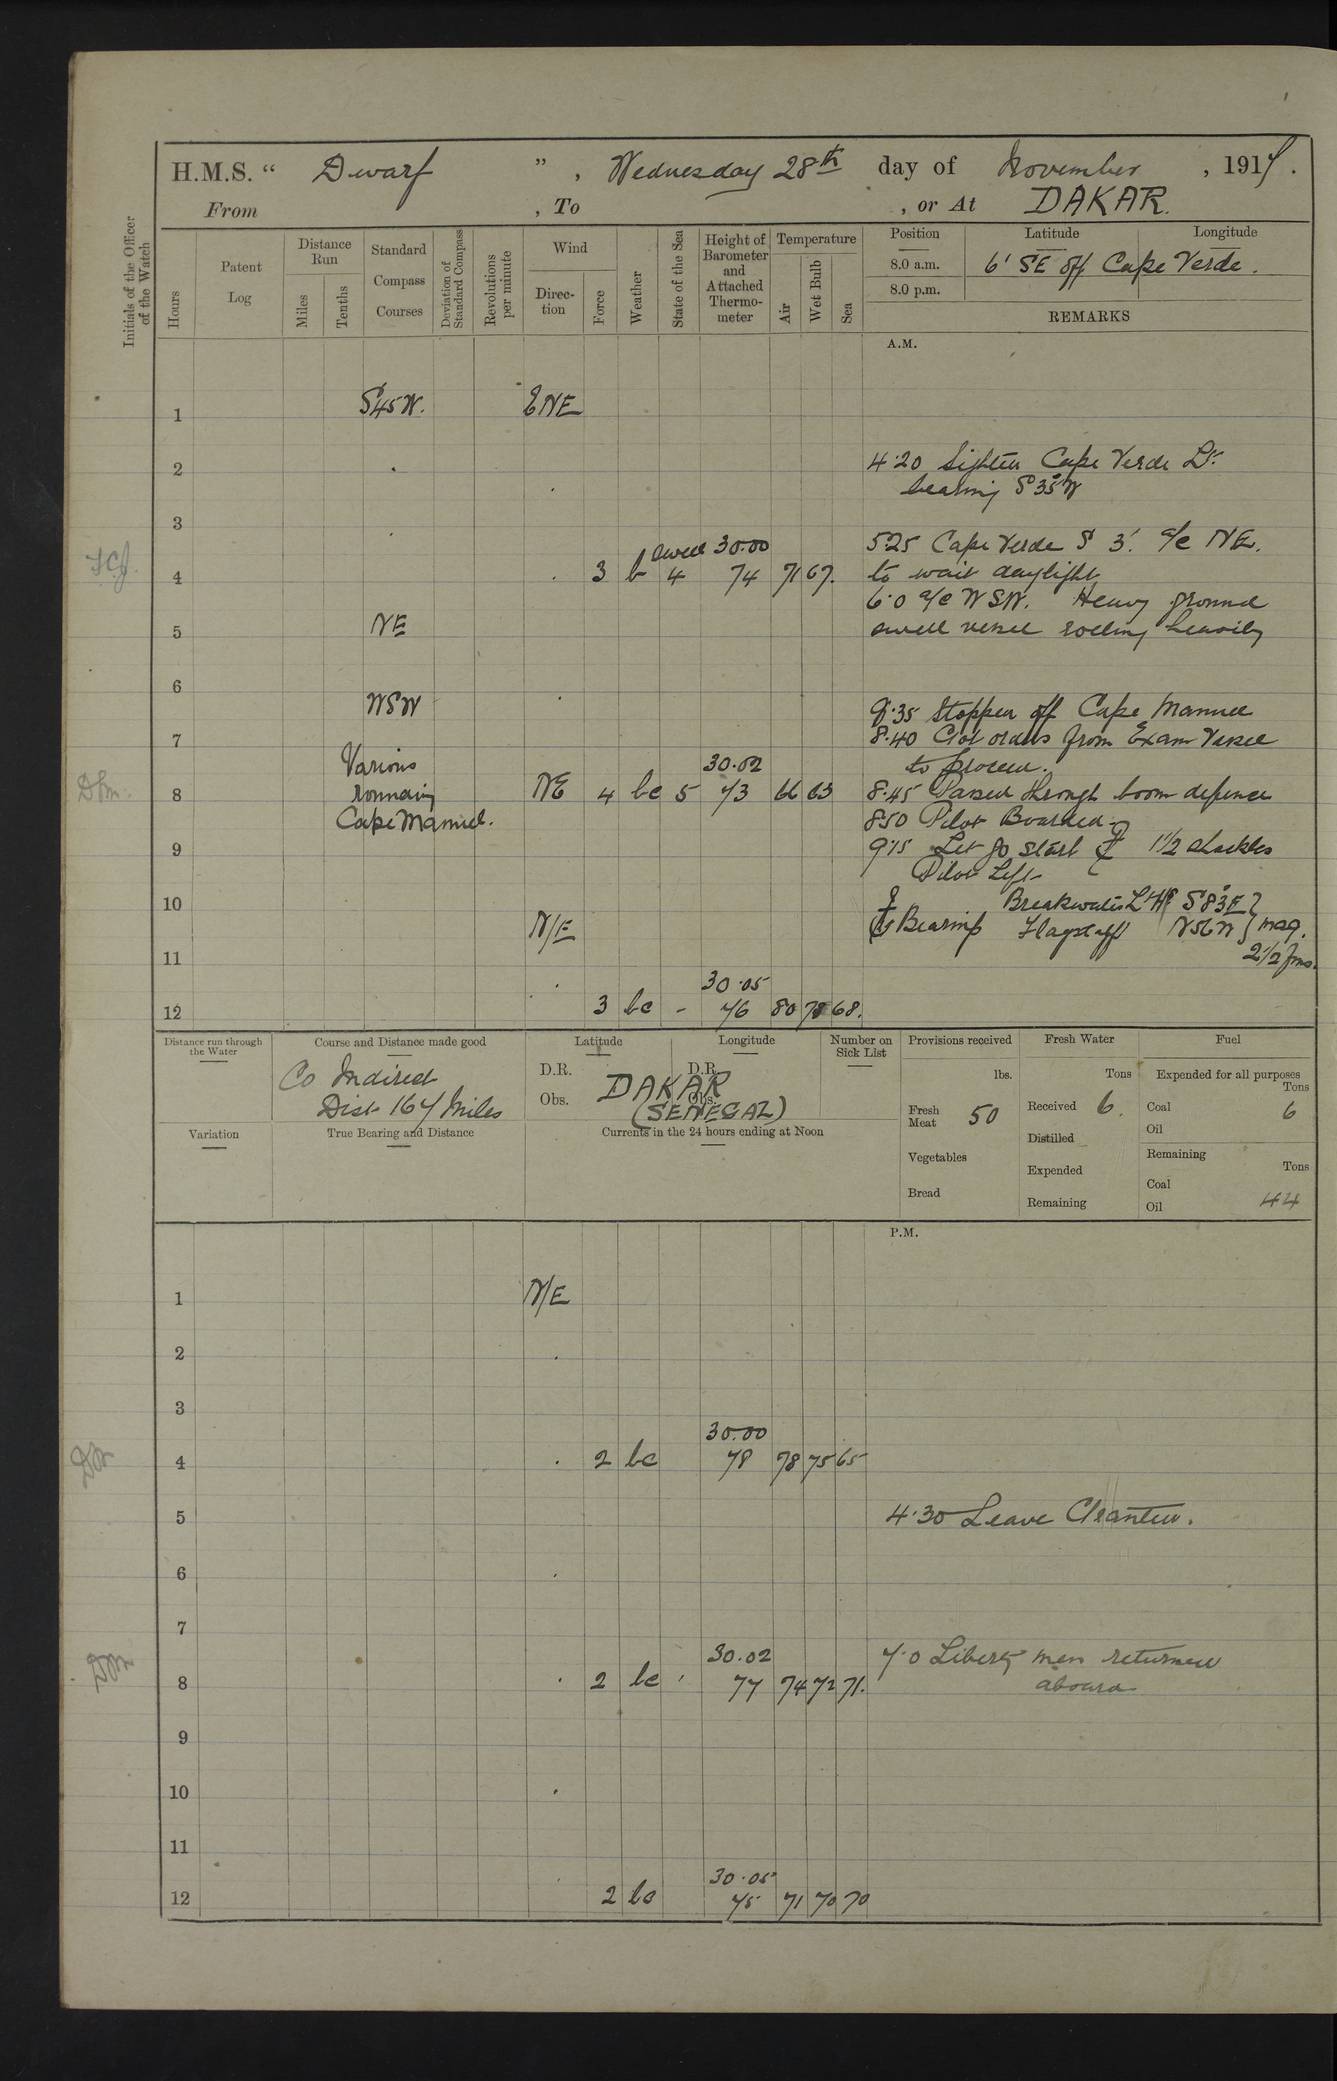 H.M.S. “ Dwarf ”, Wednesday 28th day of November, 1917.
From , To , or At DAKAR.
Initials of the Officer of the Watch
Hours
Patent Log
Distance Run
Miles
Tenths
Standard Compass Courses
Deviation of Standard Compass
Revolutions per minute
Wind
Direction
Force
Weather
State of the Sea
Height of Barometer and Attached Thermometer
Temperature
Air
Wet Bulb
Sea
Position
8.0 a.m.
8.0 p.m.
Latitude
Longitude
6' SE off Cape Verde.
REMARKS
A.M.
1 S45W. ENE
2
4.20 Sighted Cape Verde Lt.
bearing S35°W
3
5.25 Cape Verde S 3'. a/c NE.
swell 30.00
4 3 b 4 74 71 67.
to wait daylight
6.0 a/c WSW. Heavy ground
5 NE
swell vessel rolling heavily
6 WSW
8.35 Stopped off Cape Manuel
7
8.40 Got orders from Exam Vessel
to proceed.
Various 30.02
8 rounding NE 4 bc 5 73 66 63
Cape Manuel.
8.45 Passed through boom defence
8.50 Pilot Boarded
9
9.15 Let go starb 1 1/2 shackles
Pilot Left
10
Breakwater Lt H S83°E
N/E
Bearings Flagstaff N56W mag.
2 1/2 fms.
11
30.05
12 3 bc - 76 80 78 68.
Distance run through the Water
Course and Distance made good
Co Indirect
Dist 167 Miles
Latitude
D.R.
Obs.
Longitude
D.R.
Obs.
DAKAR
(SENEGAL)
Number on Sick List
Provisions received
lbs.
Fresh Meat 50
Vegetables
Bread
Fresh Water
Tons
Received 6.
Distilled
Expended
Remaining
Fuel
Expended for all purposes
Tons
Coal 6
Oil
Remaining
Tons
Coal
Oil 44
Variation
True Bearing and Distance
Currents in the 24 hours ending at Noon
P.M.
1 N/E
2
3
30.00
4 2 bc 78 78 75 65
5
4.30 Leave Granted.
6
7
30.02
7.0 Liberty men returned
8 2 bc 77 74 72 71.
aboard
9
10
11
30.05
12 2 bc 75 71 70 70